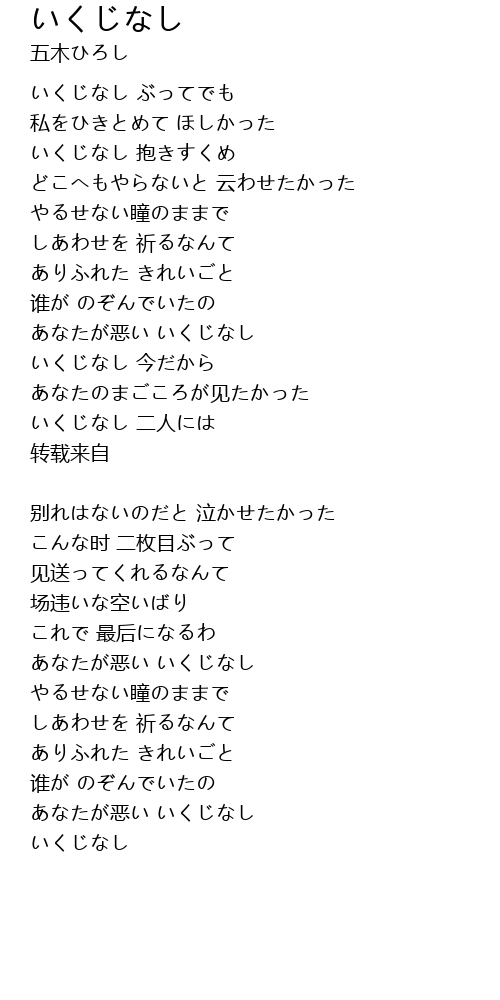 いくじなし
五木ひろし
いくじなし ぶってでも
私をひきとめて ほしかった
いくじなし 抱きすくめ
どこへもやらないと 云わせたかった
やるせない瞳のままで
しあわせを 祈るなんて
ありふれた きれいごと
谁が のぞんでいたの
あなたが恶い いくじなし
いくじなし 今だから
あなたのまごころが见たかった
いくじなし 二人には
转载来自
别れはないのだと 泣かせたかった
こんな时 二枚目ぶって
见送ってくれるなんて
场违いな空いばり
これで 最后になるわ
あなたが恶い いくじなし
やるせない瞳のままで
しあわせを 祈るなんて
ありふれた きれいごと
谁が のぞんでいたの
あなたが恶い いくじなし
いくじなし